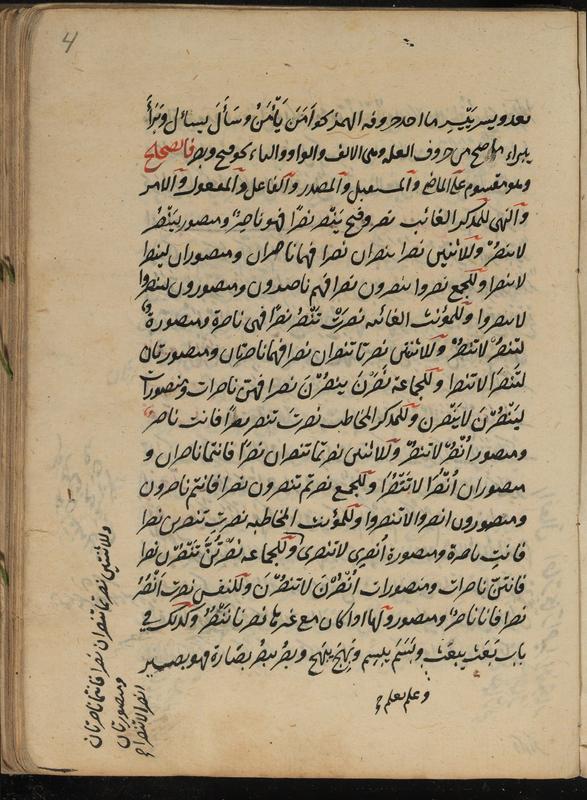 4
ما احد حروفه الهمزة كو اَمَنَ يَأْمَنُ وسَأَلَ يسائل وبَرَأَ
يبراء ما صح من حروف العلة وهى الالف والواو والياء كو فتح ونصر فالصحيح
وهو مقسوم على الماضى والمستقبل والمصدر والفاعل والمفعول والامر
والنهى للمذكر الغائب نصر وفتح يَنْصُر نصرًا فهو ناصِرٌ ومنصور لِيَنْصُرْ
لا ينصُرْ وللاثنين نصرا ينصران نصرا فهما ناصران ومنصوران لينصرا
لا ينصرا وللجمع نصروا ينصرون نصرا فهم ناصرون ومنصورون لينصروا
لا ينصروا وللمؤنث الغائبه نصرَتْ تَنْصُرُ نصرًا فهى ناصرة ومنصورة
لتنصُرْ لا تنصُرْ وللاثنتين نصرتا تنصران نصرا فهما ناصرتان ومنصورتان
لتَنْصُرَا لا تنصرا وللجماعة نَصَرْنَ ينصُرْنَ نصرا فهنّ ناصرات ومنصورات
ليَنْصُرْنَ لا يَنْصُرْن وللمذكر المخاطب نصرتَ تنصر نصرًا فانت ناصر
ومنصور اُنْصُرْ لا تنصُرْ وللاثنين نصرتما تنصران نصرًا فانتما ناصران و
منصوران اُنْصُرَا لا تَنْصُرَا وللجمع نصرتم تنصرون نصرا فانتم ناصرون
ومنصورون انصروا لا تنصروا وللمؤنث المخاطبه نصرتِ تنصرين نصرا
فانتِ ناصرة ومنصورة اُنصُرِى لا تنصرى وللجماعة نصَرْتُنَّ تَنْصُرْن نصرا
فانتنّ ناصرات ومنصورات اُنْصُرْنَ لا تنصُرْنَ وللنفس نصرت اَنْصُرُ
نصرا فانا ناصرٌ ومنصور ولهما اذا كان مع غيرها نصرنا نَنْصُرُ وكذلك فى
باب بَعَثَ يبعَث وبَسَمَ يبسم ونَهَجَ ينهج وبصُر يبصُر بصَارة فهو بصير
وعلم يعلم
وللاثنتين نصرتما تنصران نصرا فانتما ناصرتان
ومنصورتان
انصرا لا تنصرا